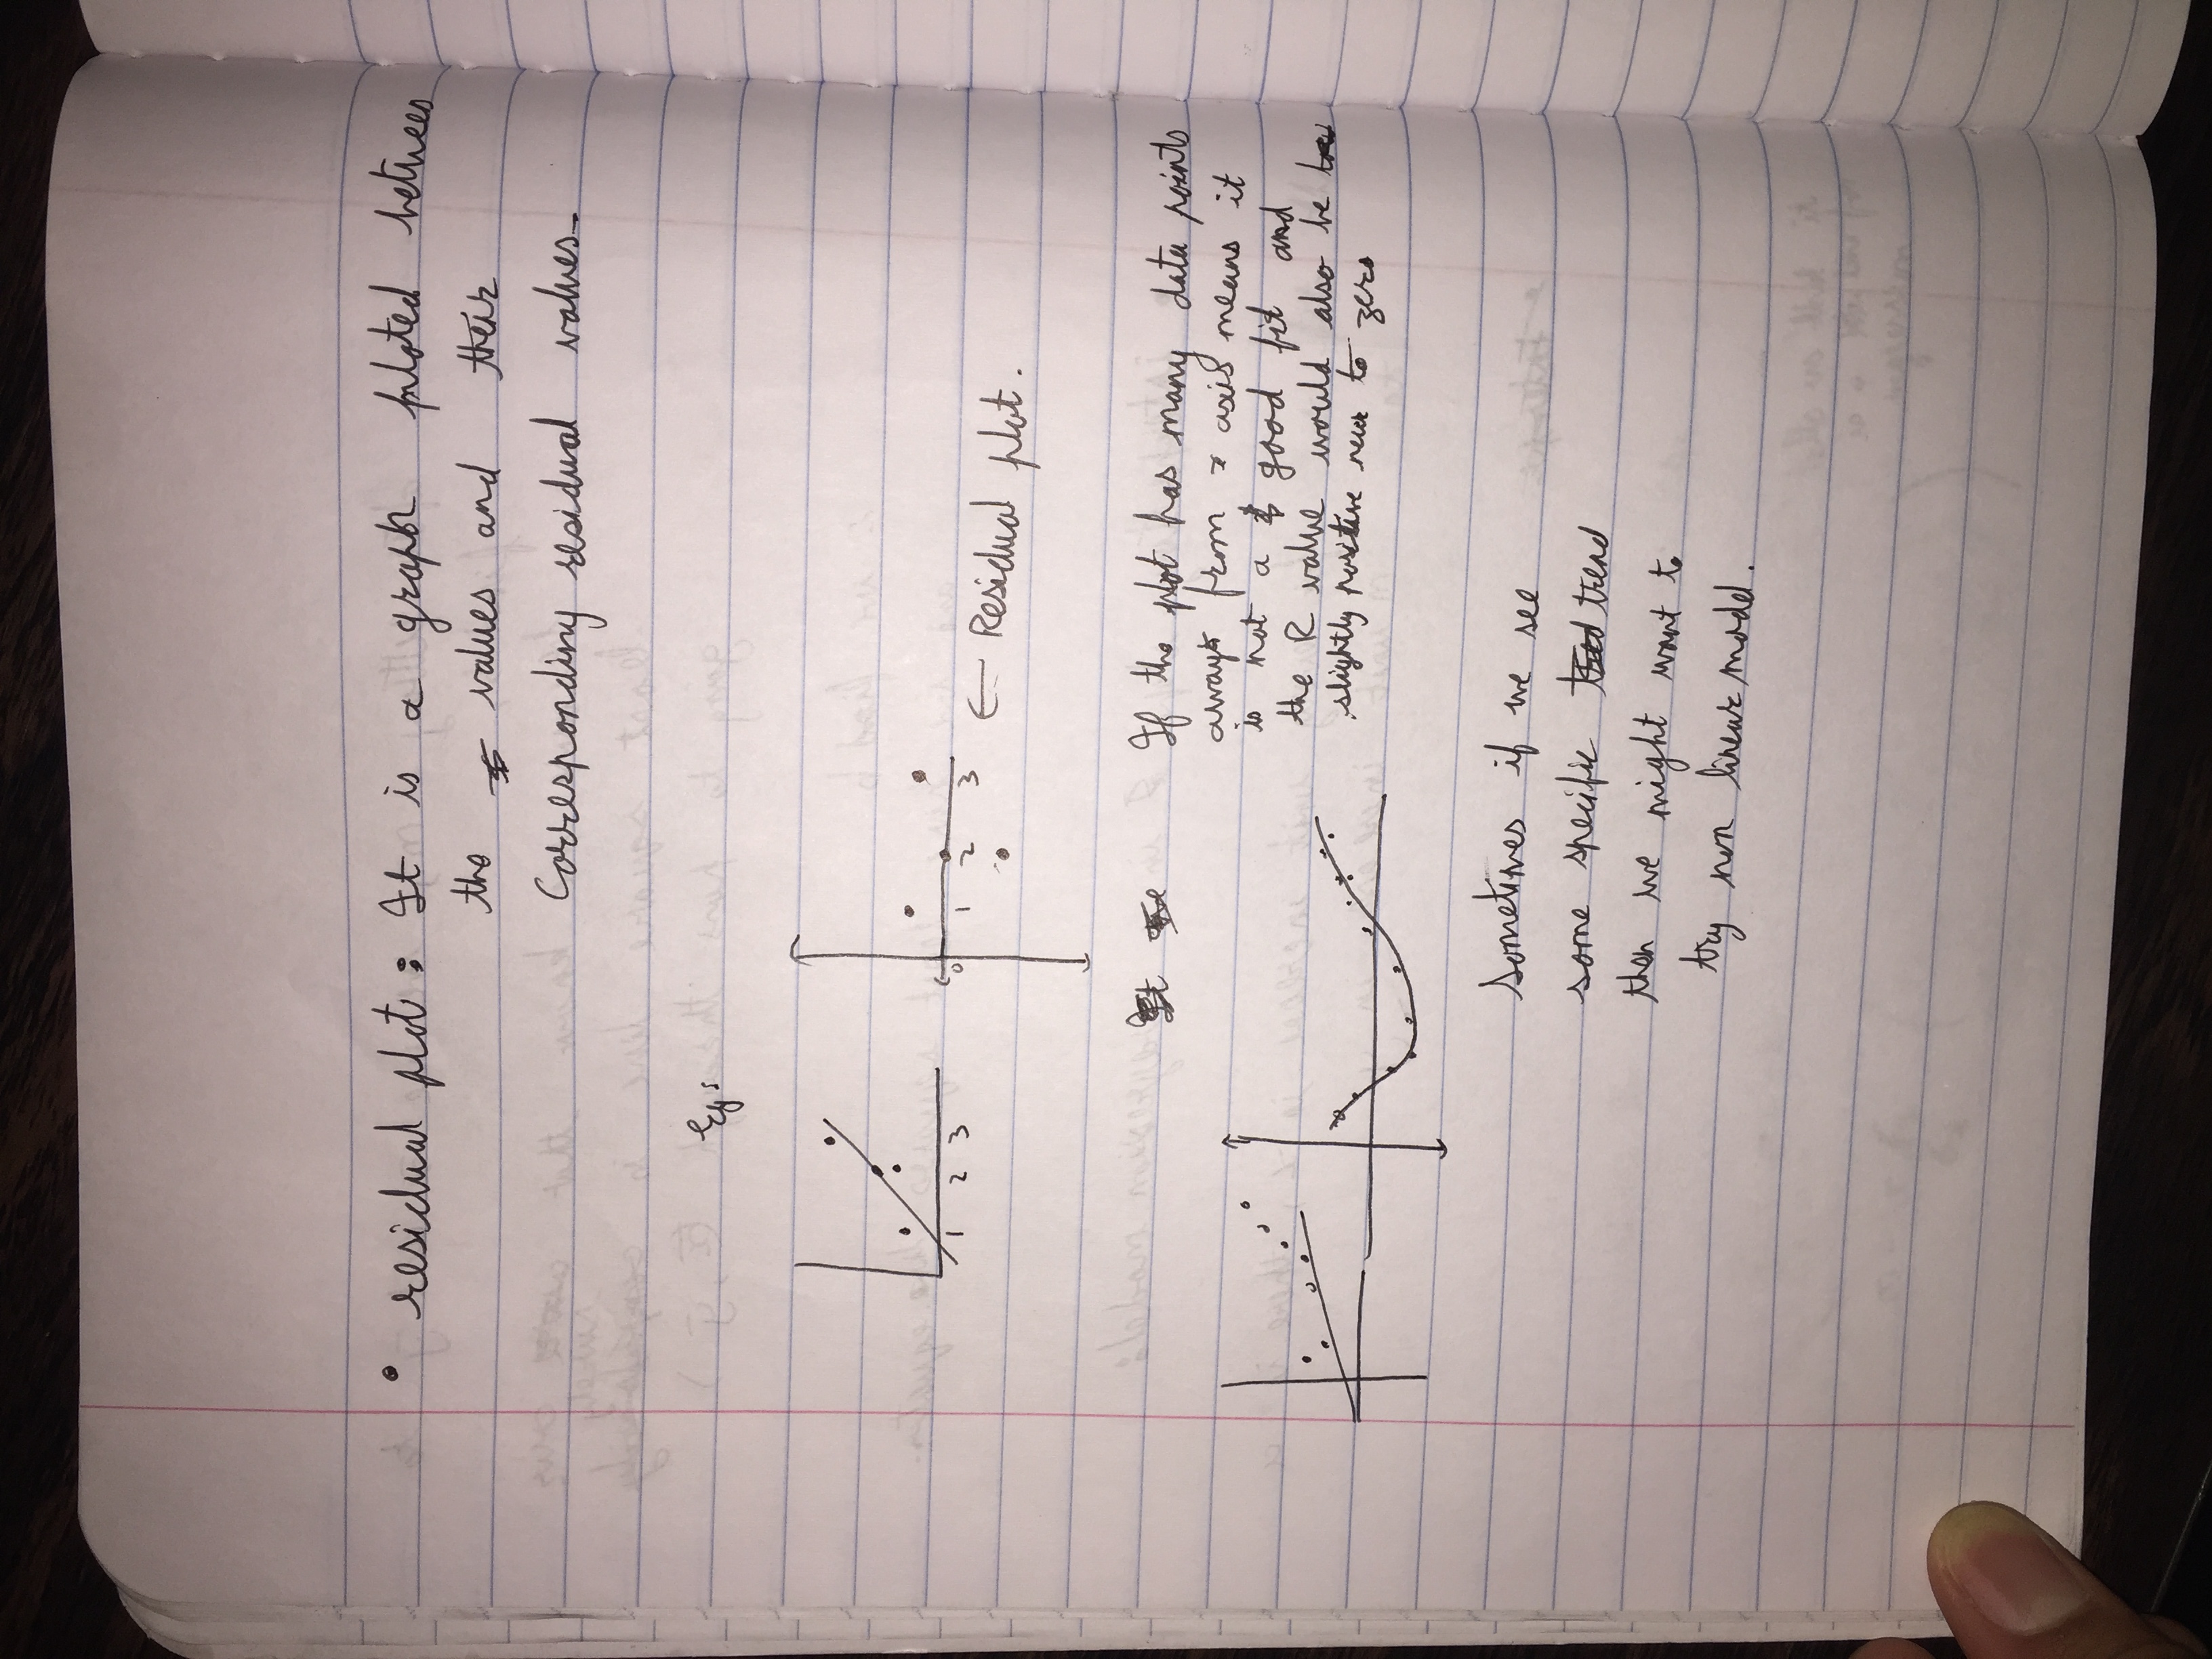 • residual plot : It is a graph ploted betwees
the values and their
Corresponding residual values-
Eg:
1 2 3
0 1 2 3
← Residual plot.
If the plot has many data points
away from x axis means it
is not a good fit and
the R value would also be
slightly positive near to zero
Sometimes if we see
some specific trend
then we might want to
try non linear model.